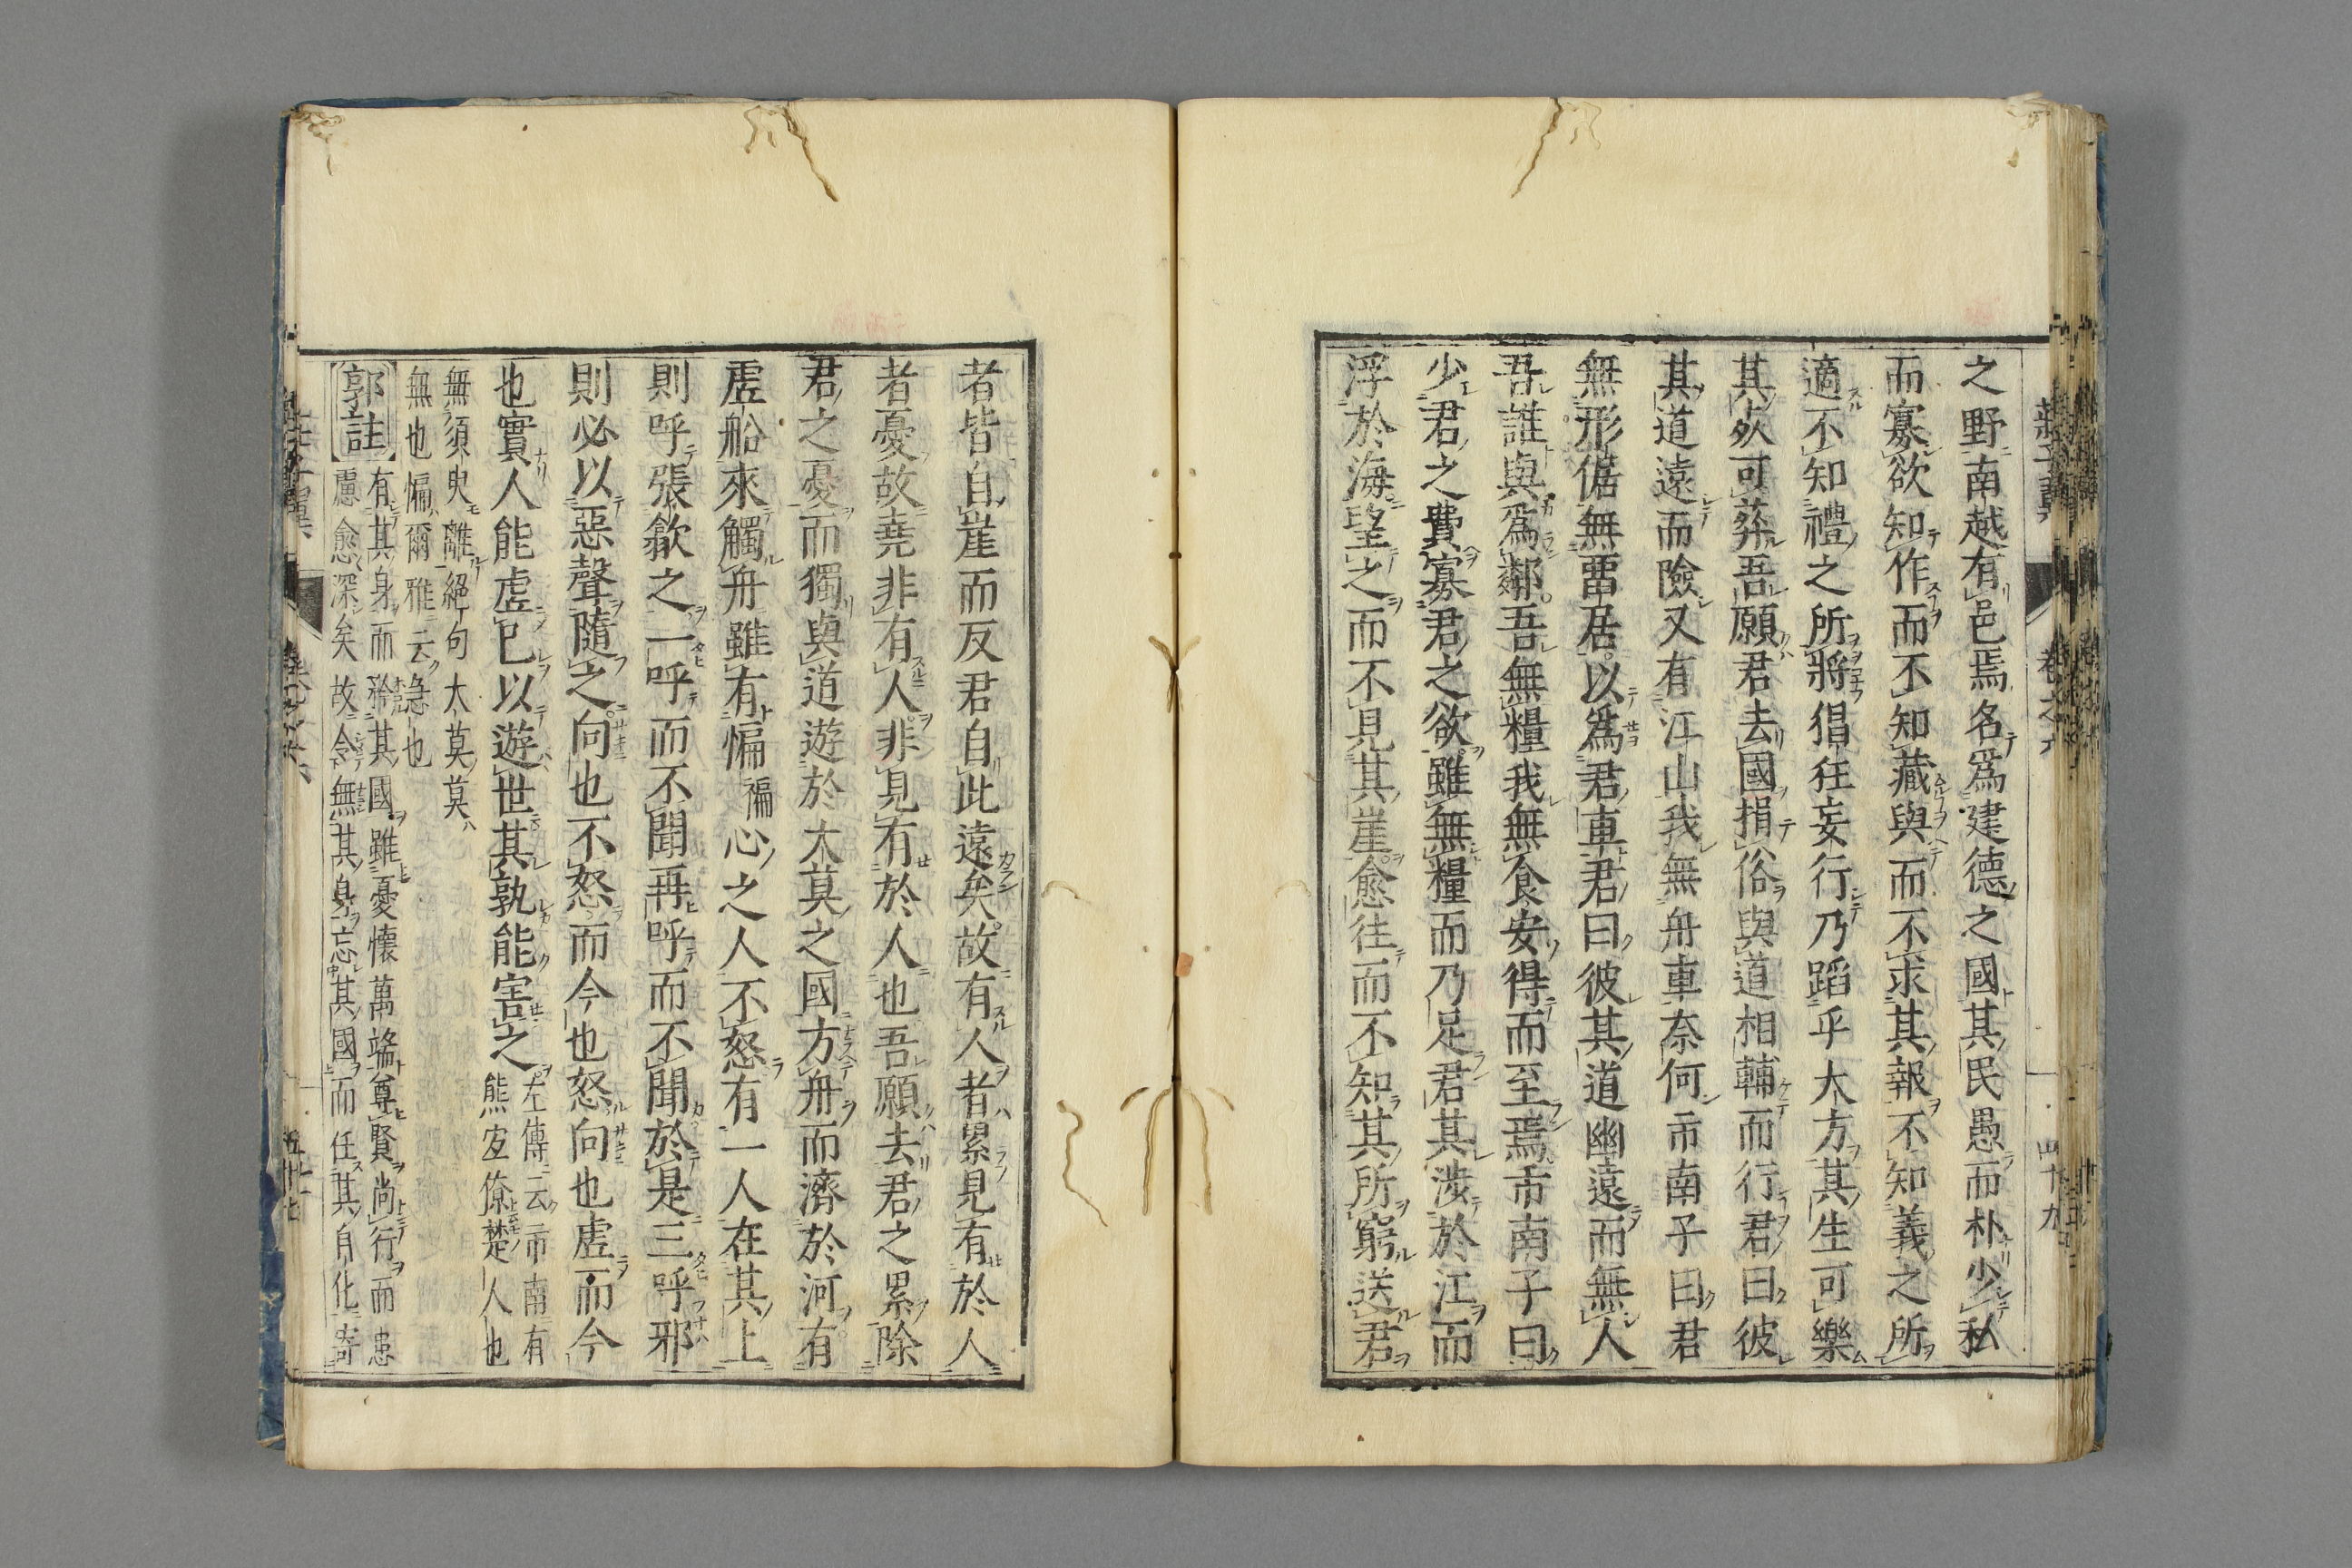 之野南越有邑焉名爲建德之國其民愚而朴少私
而寡欲知作而不知藏與而不求其報不知義之所
適不知禮之所將倡狂妄行乃蹈乎大方其生可樂
其死可葬吾願君去國捐俗與道相輔而行君曰彼
其道遠而險又有江山我無舟車奈何市南子曰君
無形倨無畱居以爲君車君曰彼其道幽遠而無人
吾誰與爲鄰吾無糧我無食安得而至焉市南子曰
少君之費寡君之欲雖無糧而乃足君其涉於江而
浮於海望之而不見其崖愈往而不知其所窮送君
者皆自崖而反君自此遠矣故有人者累見有於人
者憂故堯非有人非見有於人也吾願去君之累除
君之憂而獨與道遊於大莫之國方舟而濟於河有
虛船來觸舟雖有惼褊心之人不怒有一人在其上
則呼張歙之一呼而不聞再呼而不聞於是三呼邪
則必以惡聲隨之向也不怒而今也怒向也虛而今
也實人能虛已以遊世其孰能害之左傳云市南有
熊宜僚楚人也
無須臾離絕句大莫莫
無也惼爾雅云急也
郭註有其身而矜其國雖憂懷萬端尊賢尚行而患
慮愈深矣故令無其身忘其國而任其自化寄